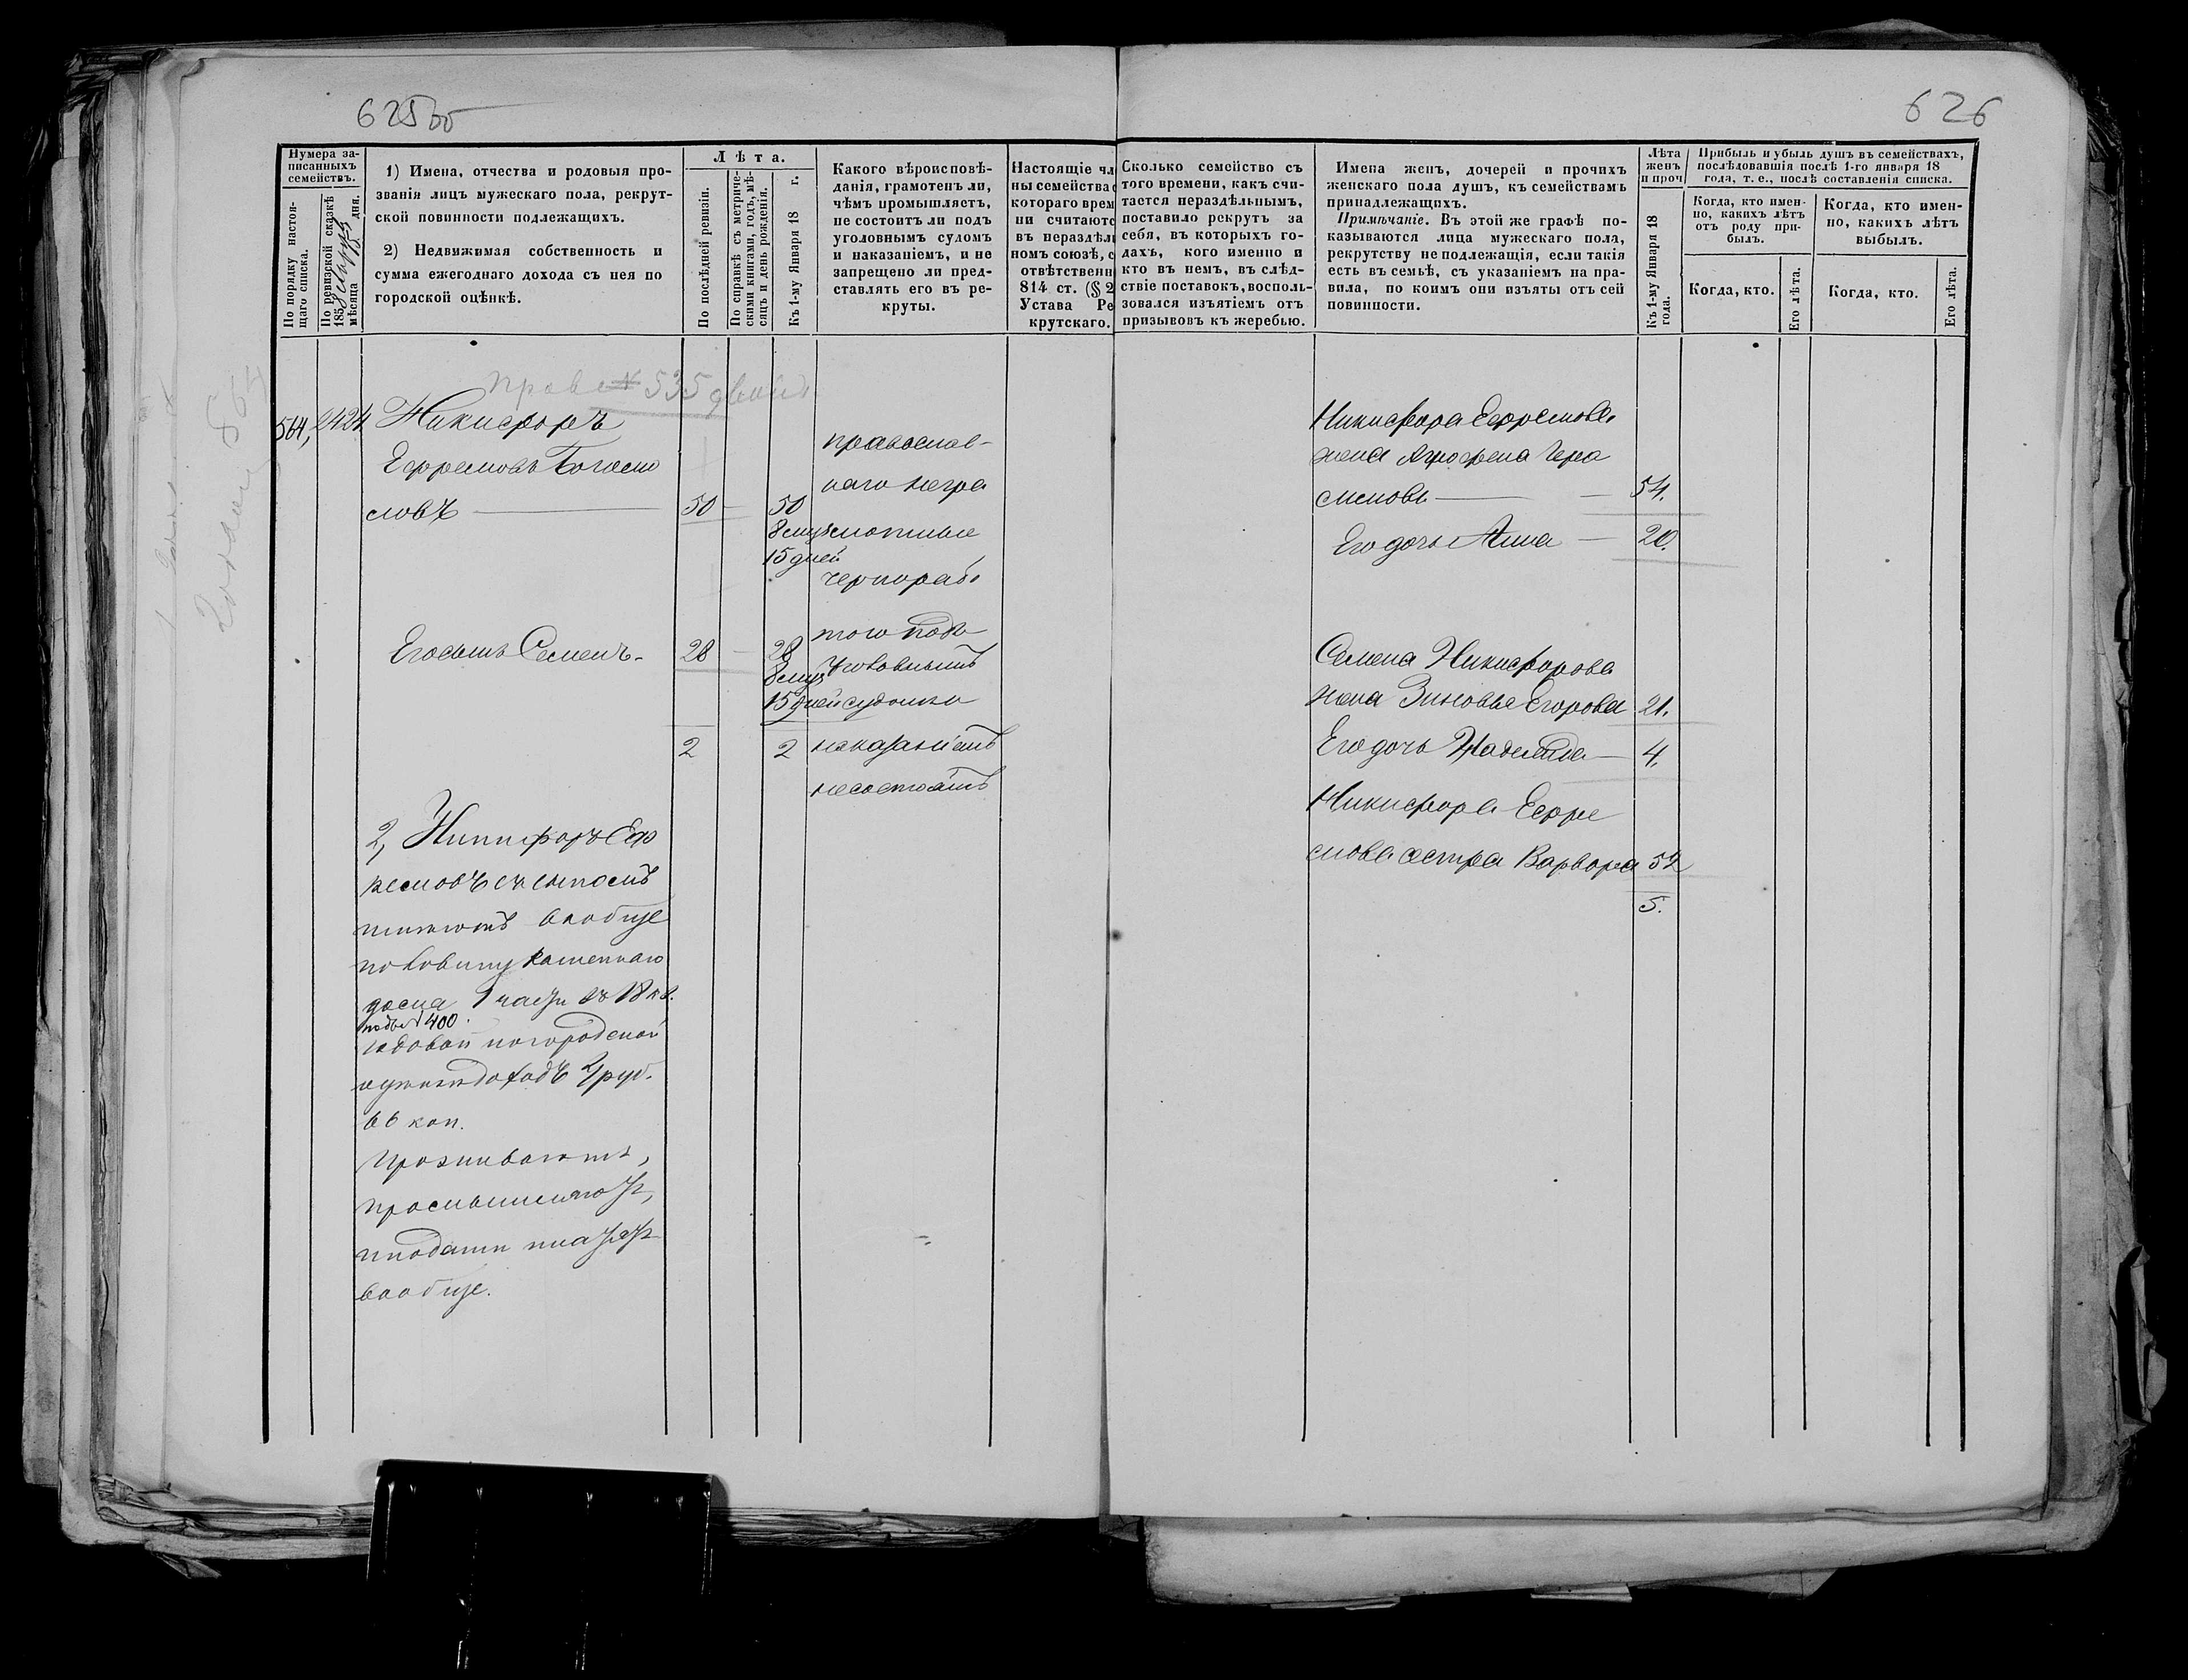 625 об
626
Нумера за-
писанныхъ
семействъ.
По порядку настоя-
щаго списка.
По ревизской сказкѣ
1858
мѣсяца дня.
1) Имена, отчества и родовыя про-
званія лицъ мужескаго пола, рекрут-
ской повинности подлежащихъ.
2) Недвижимая собственность и
сумма ежегоднаго дохода съ нея по
городской оцѣнкѣ.
Лѣта.
По послѣдней ревизіи.
По справкѣ съ метриче-
скими книгами, годъ, мѣ-
сяцъ и день рожденія.
Къ 1-му Января 18 г.
Какого вѣроисповѣ-
данія, грамотенъ ли,
чѣмъ промышляетъ,
не состоитъ ли подъ
уголовнымъ судомъ
и наказаніемъ, и не
запрещено ли пред-
ставлять его въ ре-
круты.
Настоящіе чл
ны семейства с
котораго врем
ни считаютс
въ нераздѣл
номъ союзѣ, с
отвѣтственн
814 ст. (§ 2
Устава Ре
крутскаго.
Сколько семейство съ
того времени, какъ счи-
тается нераздѣльнымъ,
поставило рекрутъ за
себя, въ которыхъ го-
дахъ, кого именно и
кто въ немъ, въ слѣд-
ствіе поставокъ, восполь-
зовался изъятіемъ отъ
призывовъ къ жеребью.
Имена женъ, дочерей и прочихъ
женскаго пола душъ, къ семействамъ
принадлежащихъ.
Примѣчаніе. Въ этой же графѣ по-
казываются лица мужескаго пола,
рекрутству не подлежащія, если такія
есть въ семьѣ, съ указаніемъ на пра-
вила, по коимъ они изъяты отъ сей
повинности.
Лѣта
женъ
и проч
Къ 1-му Января 18
года.
Прибыль и убыль душъ въ семействахъ,
послѣдовавшія послѣ 1-го января 18
года, т. е., послѣ составленія списка.
Когда, кто имен-
но, какихъ лѣтъ
отъ роду при-
былъ.
Когда, кто имен-
но, какихъ лѣтъ
выбылъ.
Когда, кто.
Его лѣта.
Когда, кто.
Его лѣта.
№ 535
564, 2424 Никифоръ
Ефремовъ Богосло
словъ 50 50
8 мцъ
15 дней
Его сынъ Семенъ 28 28
8 мцъ
15 дней
2 2
православ-
наго негра
мотные
чернораб
того под
уголовнымъ
судомъ и
наказаніемъ
несостоятъ
2, Никифоръ Еф
ремовъ съ сыномъ
имѣютъ вообще
половину каменнаго
дома 1 части въ 18 кв.
подъ № 400
годовой погородской
оценкѣ доходъ 2 руб.
66 коп.
проживаютъ,
промышляютъ,
и подати платятъ
вообще.
Никифора Ефремова
жена Агрофена Гера
симова 54.
Его дочь Анна 20.
Семена Никифорова
жена Зиновья Егорова 21.
Его дочь Надежда 4.
Никифора Ефре
мова сестра Варвара 52
5.